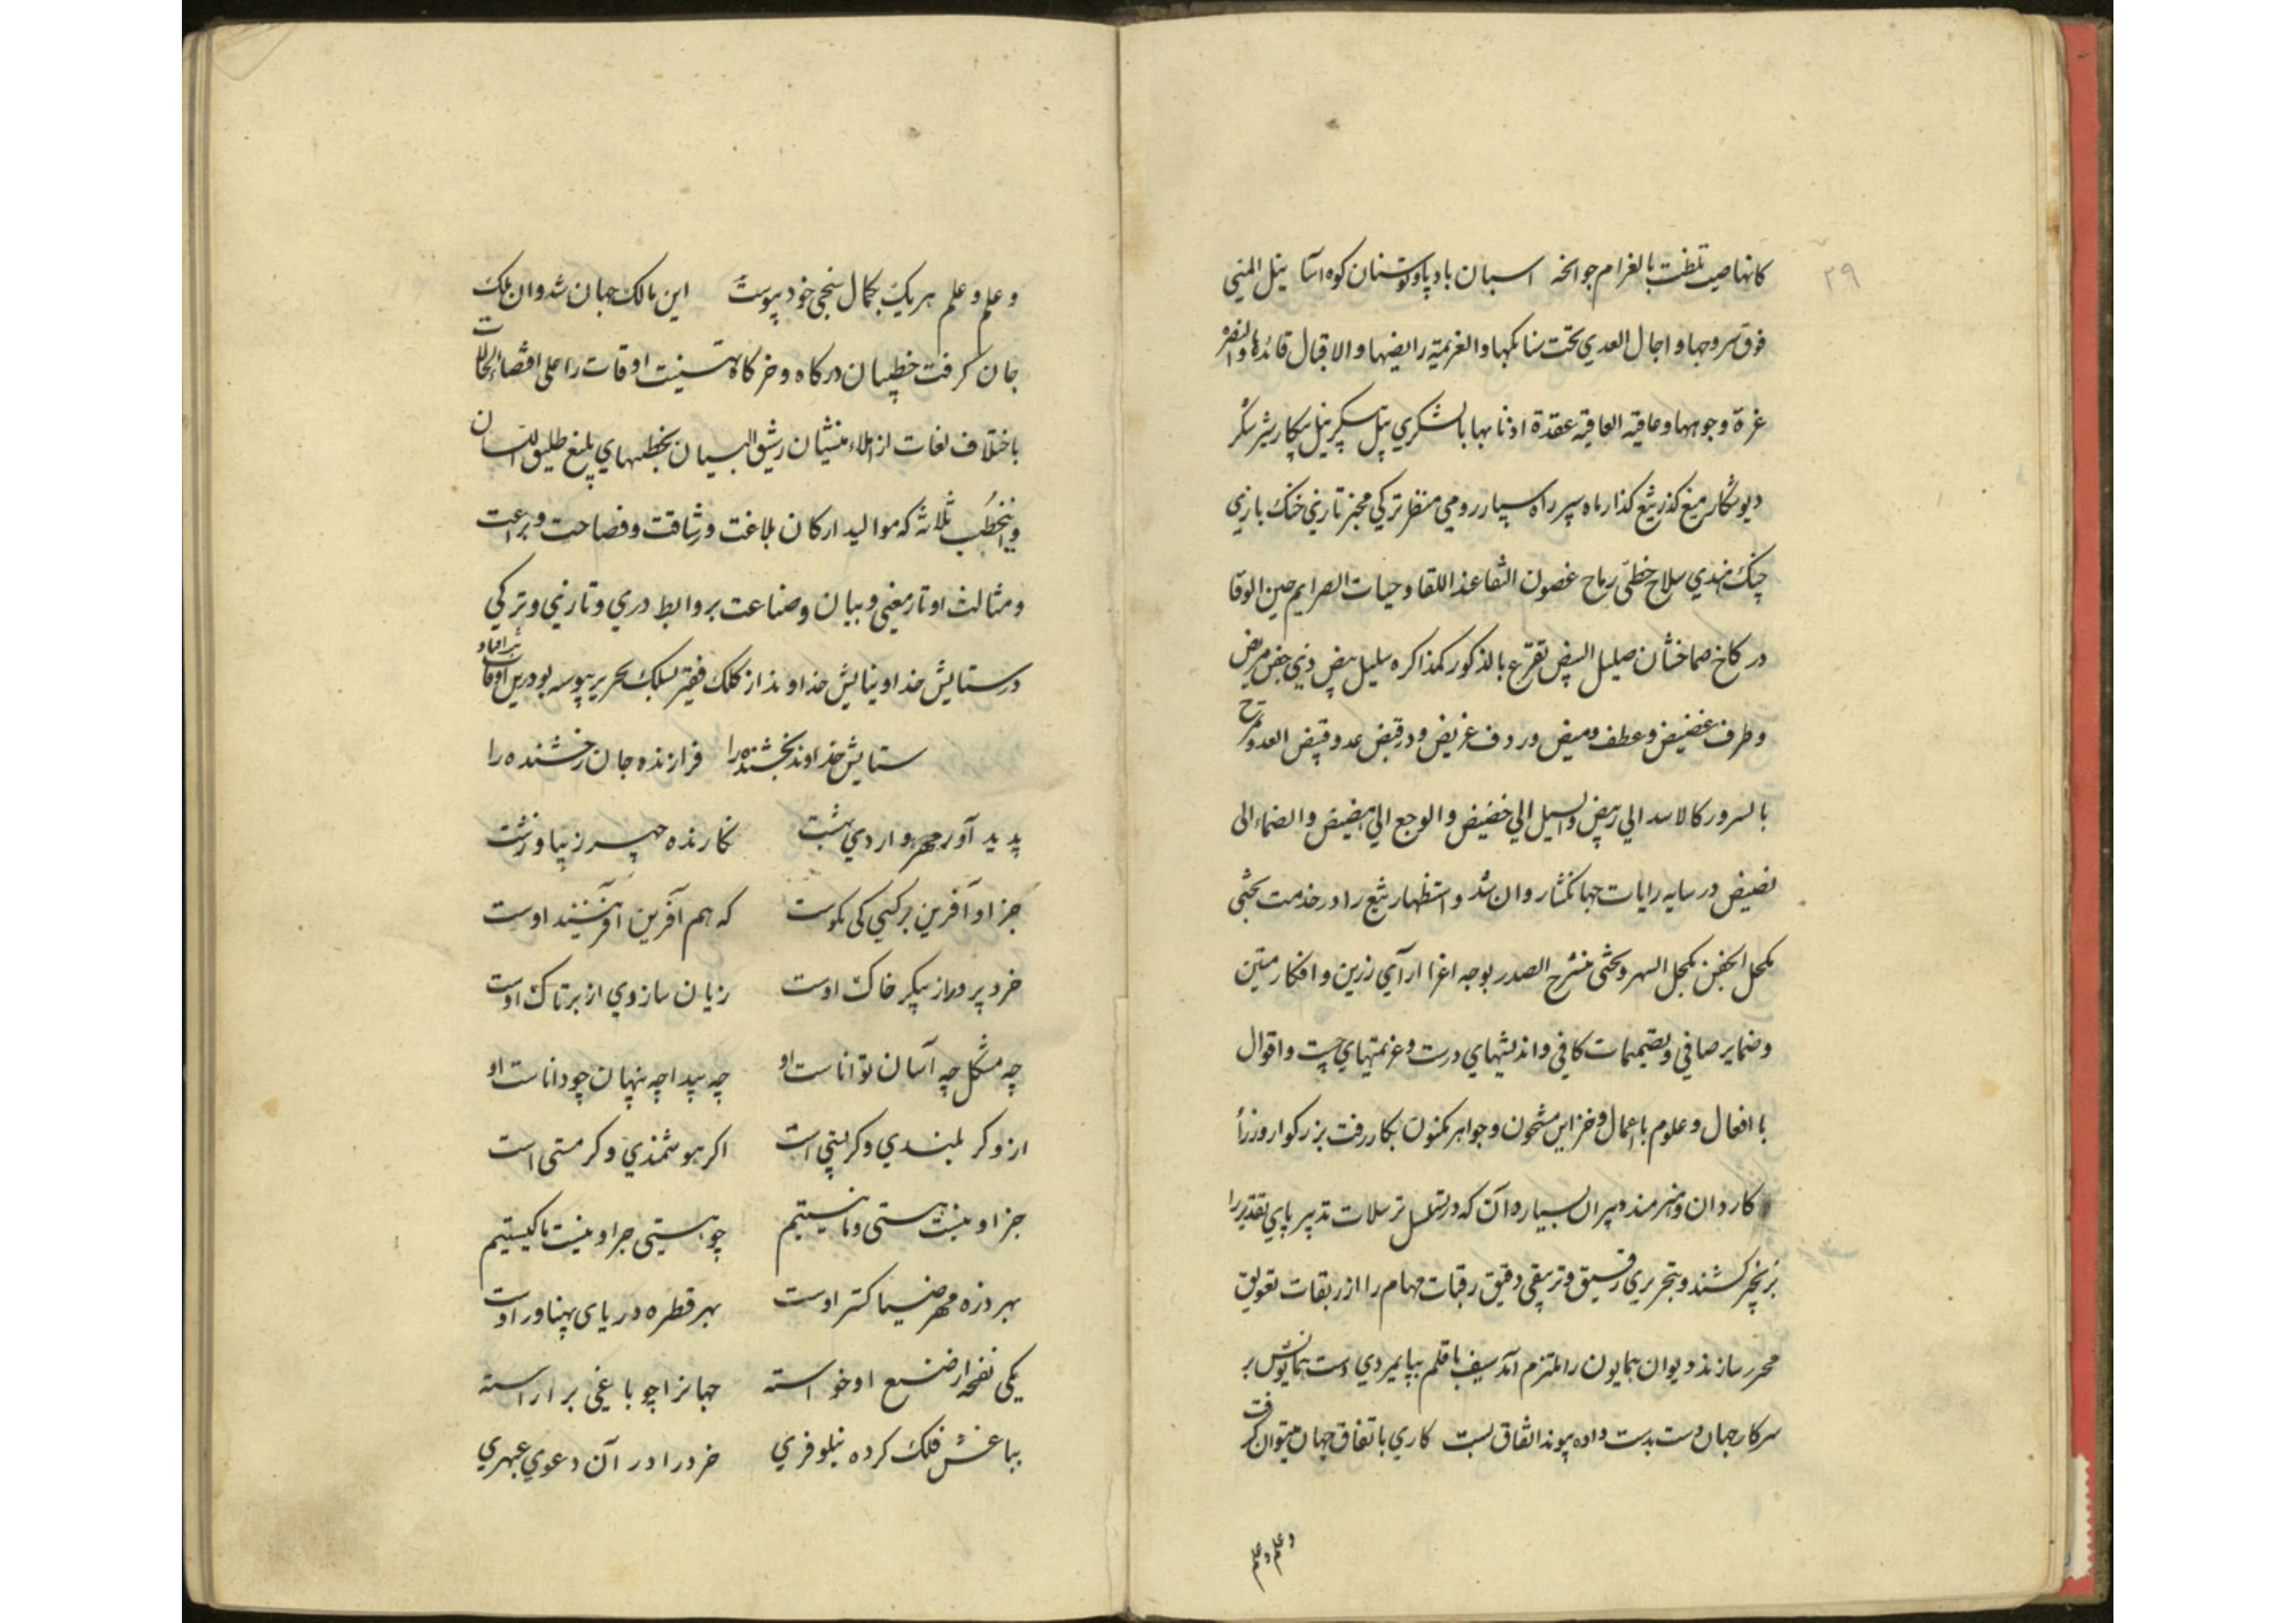 ۲۹
کانها صیت تلظت بالغرام جوانحه اسبان باد پا و توسنان کوه آسا ینل المنی
فوق سروجها و اجال العدی تحت سنابکها و العزیمة رایضها و الاقبال قائدها و النصرة
غرة وجوهها و عاقبه العافیه عقدة اذنابها بالشکری پیل سپکر پیل پیکار شیر شکر
دیو شکار میغ گذر تیغ گذار ماه سپر راه سپار رومی منظر ترکی مخبر تازی خنک بازی
چنک هندی سلاح خطی رماح غصون النقا عند اللقا و حیات الصرایم حین الوقا
در کاخ صماخشان صلیل البیض تقرع بالذکور کمذاکره سلیل بیض ذی جفن مریض
و طرف غضیض و عطف ومیض و ردف عریض و در قبض عدو قبیض العدو تمرح
بالسرور کالاسد الی ربیض و السیل الی حضیض و الوجع الی هضیض و الضماء الی
نضیض در سایه رایات جهانکشا روان شد و استظهار تیغ را در خدمت بختی
مکحل الجفن بکحل السهر و بختی منشرح الصدر بوجه اغر از آرای زرین و افکار متین
و ضمایر صافی و تصمیمات کافی و اندیشهای درست و عزیمتهای چست و اقوال
با افعال و علوم با اعمال و خزاین مشحون و جواهر مکنون بکار رفت بزرکوار وزرأ
کاردان و هنرمند دبیران بسیار دان که در تسلسل ترسلات تدبیر پای تقدیر را
بزنجیر کشند و بتحریری رقیق و ترتیبی دقیق رقبات مهام را از ربقات تعویق
محرر سازند دیوان همایون را ملتزم آمد سیف با قلم بپایمردی دست همایونش بر
سرکار جهان دست بدست داده پیوند اتفاق بست کاری باتفاق جهان میتوان کرفت
و علم و علم
و علم و علم هر یک بجمال سنجی خود پیوست این مالک جهان شد و ان ملک
جان کرفت خطیبان درکاه و خرکاه تهنیت اوقات را علی اقتضاء الحالات
باختلاف لغات از املاء منشیان رشیق البیان بخطبهای بلیغ طلیق اللسان
و این خطب ثلاثه که موالید ارکان بلاغت و رشاقت و فصاحت و براعت
و مثالث اوتار معنی و بیان و صناعت بروابط دری و تازی و ترکی
در ستایش خدا و نیایش خداوند از کلک فقیر بسلک تحریر پیوسته بود درین اوقات برافتاد
ستایش خداوند بخشنده را فرازنده جان رخشنده را
پدید آور مهر و اردی بهشت نکارنده چهر زیبا و زشت
جز او آفرین بر کسی کی نکوست که هم آفرین آفریننده اوست
خرد پرور از پیکر خاک اوست رزیان سازوی از بر تاک اوست
چه مشکل چه آسان توانا ست او چه پیدا چه پنهان چو دانا ست او
ازو کر بلندی و کر پستی است اکر هوشمندی و کر مستی است
جز او نیست هستی و ما نیستیم چو هستی جز او نیست ما کیستیم
بهر ذره مهر ضیا کستر اوست بهر قطره دریای پهناور اوست
یکی نفحه از صنع او خواسته جهانرا چو باغی بر اراسته
بباغش فلک کرده نیلوفری خرد را در آن دعوی عبهری